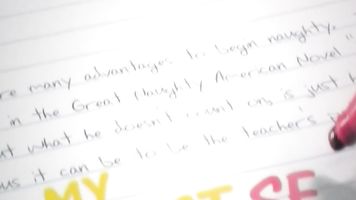 re many advantages to begin naughty.
in the Great Naughty American Novel"
ut what he doesn't count on, is just
us it can be to be the teacher's
MY SE